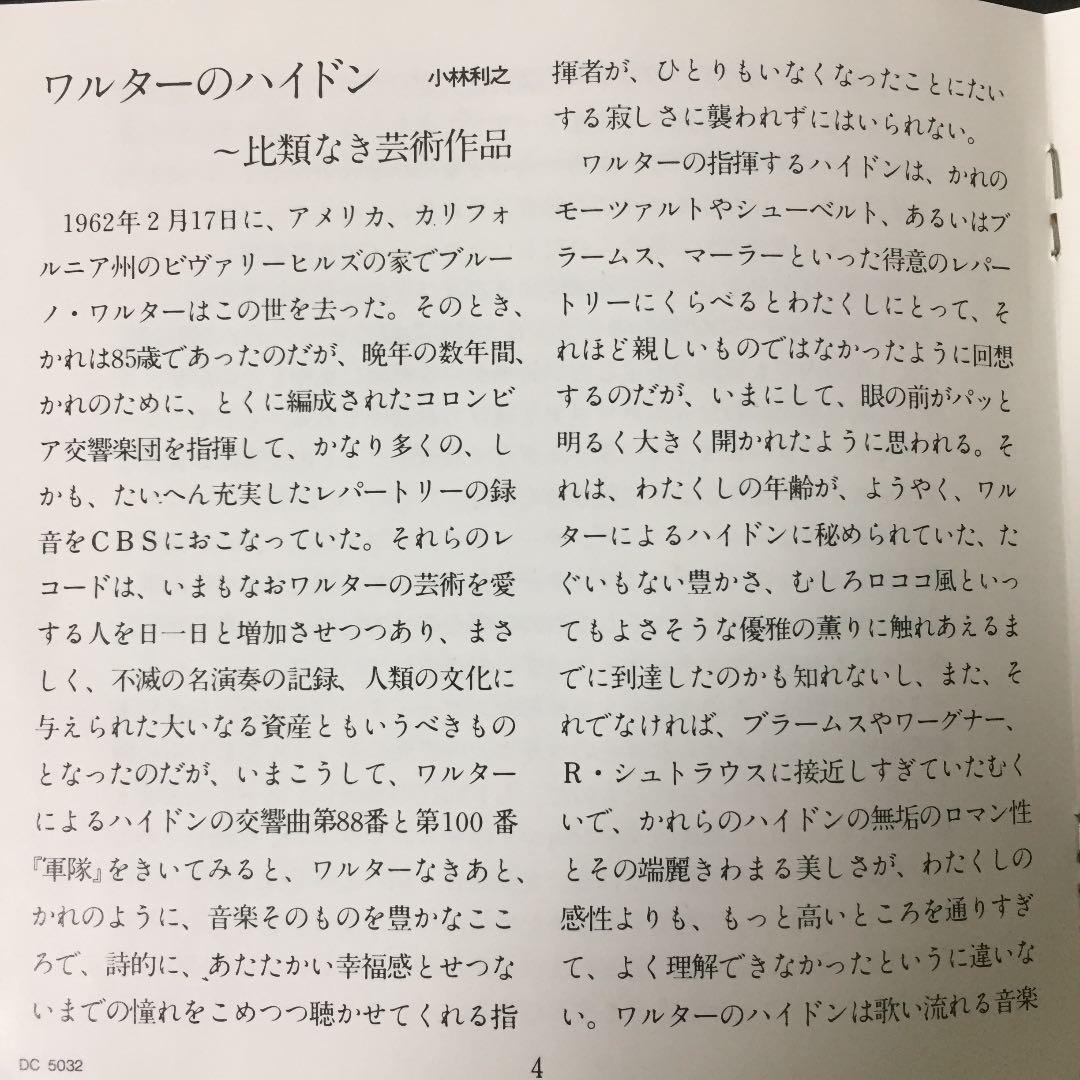 ワルターのハイドン　小林利之
～比類なき芸術作品
1962年2月17日に、アメリカ、カリフォ
ルニア州のビヴァリーヒルズの家でブルー
ノ・ワルターはこの世を去った。そのとき、
かれは85歳であったのだが、晩年の数年間、
かれのために、とくに編成されたコロンビ
ア交響楽団を指揮して、かなり多くの、し
かも、たいへん充実したレパートリーの録
音をCBSにおこなっていた。それらのレ
コードは、いまもなおワルターの芸術を愛
する人を日一日と増加させつつあり、まさ
しく、不滅の名演奏の記録、人類の文化に
与えられた大いなる資産ともいうべきもの
となったのだが、いまこうして、ワルター
によるハイドンの交響曲第88番と第100番
『軍隊』をきいてみると、ワルターなきあと、
かれのように、音楽そのものを豊かなここ
ろで、詩的に、あたたかい幸福感とせつな
いまでの憧れをこめつつ聴かせてくれる指
揮者が、ひとりもいなくなったことにたい
する寂しさに襲われずにはいられない。
ワルターの指揮するハイドンは、かれの
モーツァルトやシューベルト、あるいはブ
ラームス、マーラーといった得意のレパー
トリーにくらべるとわたくしにとって、そ
れほど親しいものではなかったように回想
するのだが、いまにして、眼の前がパッと
明るく大きく開かれたように思われる。そ
れは、わたくしの年齢が、ようやく、ワル
ターによるハイドンに秘められていた、た
ぐいもない豊かさ、むしろロココ風といっ
てもよさそうな優雅の薫りに触れあえるま
でに到達したのかも知れないし、また、そ
れでなければ、ブラームスやワーグナー、
R・シュトラウスに接近しすぎていたむく
いで、かれらのハイドンの無垢のロマン性
とその端麗きわまる美しさが、わたくしの
感性よりも、もっと高いところを通りすぎ
て、よく理解できなかったというに違いな
い。ワルターのハイドンは歌い流れる音楽
DC 5032
4